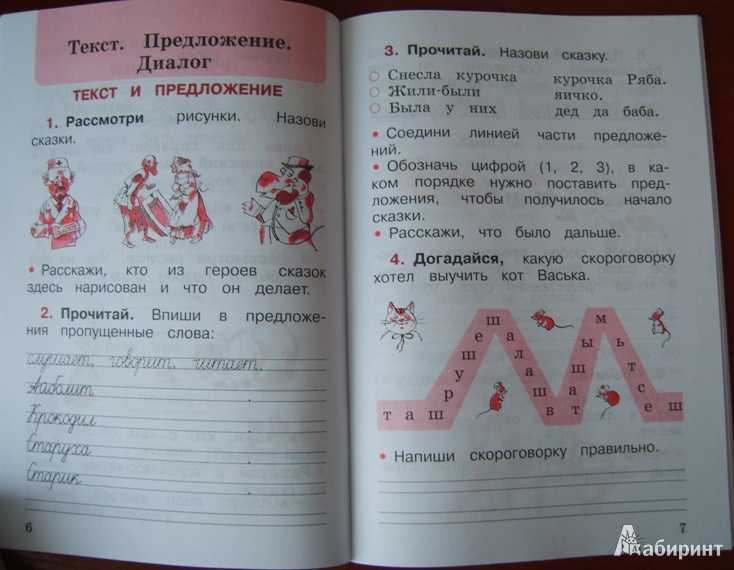 Текст. Предложение.
Диалог
ТЕКСТ И ПРЕДЛОЖЕНИЕ
1. Рассмотри рисунки. Назови
сказки.
• Расскажи, кто из героев сказок
здесь нарисован и что он делает.
2. Прочитай. Впиши в предложе-
ния пропущенные слова:
слушает, говорит, читает.
Айболит .
Крокодил .
Старуха .
Старик .
6
3. Прочитай. Назови сказку.
Снесла курочка курочка Ряба.
Жили-были яичко.
Была у них дед да баба.
• Соедини линией части предложе-
ний.
• Обозначь цифрой (1, 2, 3), в ка-
ком порядке нужно поставить пред-
ложения, чтобы получилось начало
сказки.
• Расскажи, что было дальше.
4. Догадайся, какую скороговорку
хотел выучить кот Васька.
т а ш р у ш е ш а л а ш в т а ш ы м ь т с е ш
• Напиши скороговорку правильно.
7
Лабиринт